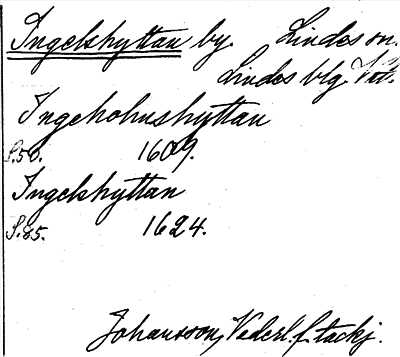 Ingelshyttan by. Lindes sn.
Lindes blg. Vstm.
Ingeholmshyttan
S.50. 1609.
Ingelshyttan
S.85. 1624.
Johansson, Vederl. f. tackj.